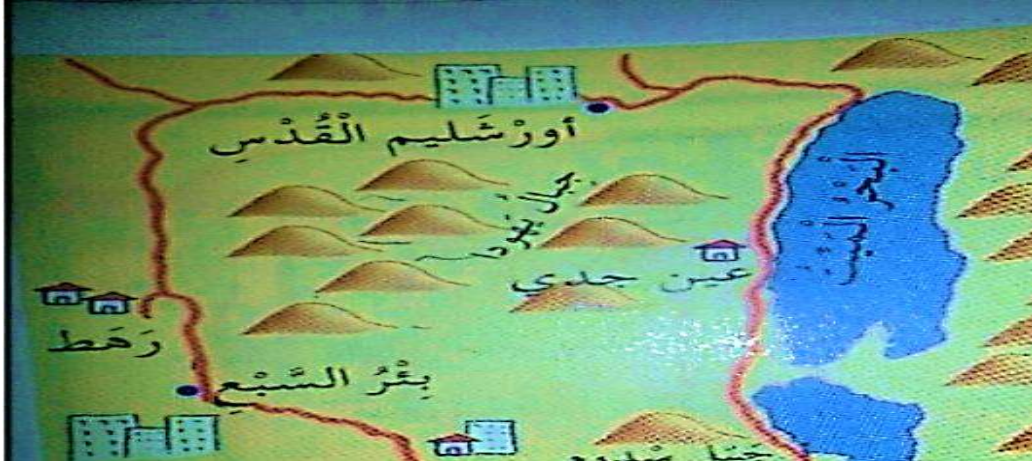 أورْشَليم الْقُدْسِ
جَبَل يَهودا
الْبَحْرُ الْمَيِّتُ
عين جدي
رَهَط
بِئْرُ السَّبْعِ
جَبَل